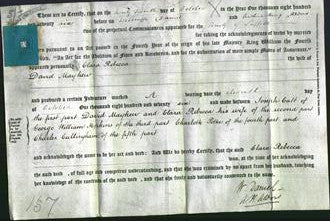 These are to Certify, that on the day of October
in the year One thousand eight hundred and
seventy six before
two of the perpetual Commissioners appointed for the
for taking the acknowledgments of deeds by married
women pursuant to an Act passed in the Fourth Year of the reign of his late Majesty King William the Fourth
intituled "An Act for the Abolition of Fines and Recoveries, and for the substitution of more simple Modes of Assurance"
appeared personally Clara Rebecca the wife of
David Mayhew
and produced a certain Indenture marked A bearing date the eleventh day
of October One thousand eight hundred and seventy six and made between Joseph Catt of
the first part David Mayhew and Clara Rebecca his wife of the second part
George William Hopkins of the third part Charlotte of the fourth part and
Charles Cullingham of the fifth part
and acknowledged the same to be her act and deed: And We do hereby Certify, that the said Clara Rebecca
was, at the time of her acknowledging
the said deed, of full age and competent understanding, and that she was examined by us apart from her husband, touching
her knowledge of the contents of the said deed, and that she freely and voluntarily consented to the same.
157